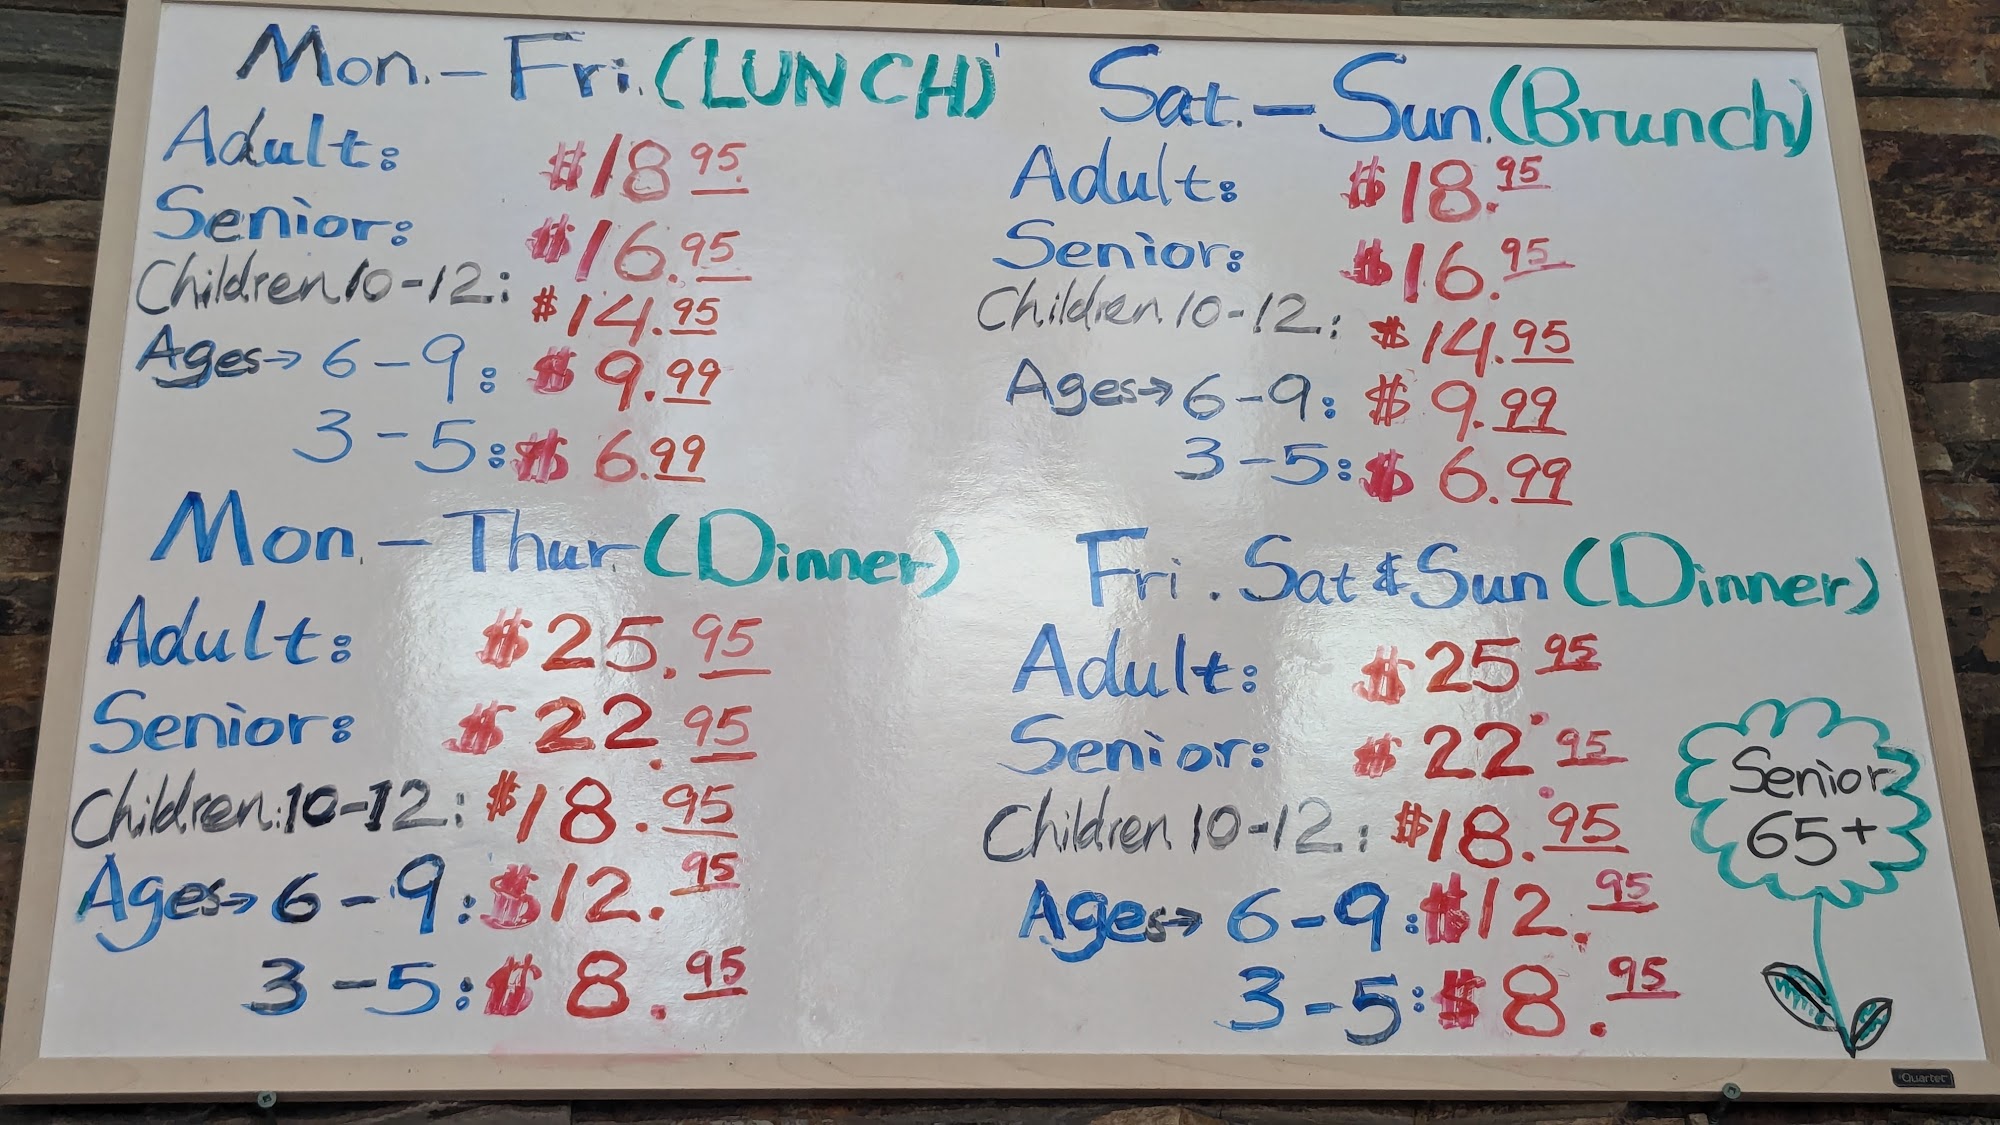 Mon. - Fri. (LUNCH)
Adult: $18 95
Senior: $16.95
Children 10-12: $14.95
Ages→ 6-9: $9.99
3-5: $6.99
Sat. - Sun. (Brunch)
Adult: $18.95
Senior: $16.95
Children 10-12: $14.95
Ages→ 6-9: $9.99
3-5: $6.99
Mon. - Thur. (Dinner)
Adult: $25.95
Senior: $22.95
Children: 10-12: $18.95
Ages→ 6-9: $12.95
3-5: $8.95
Fri. Sat & Sun (Dinner)
Adult: $25 95
Senior: $22.95
Children 10-12: $18.95
Ages→ 6-9: $12.95
3-5: $8.95
Senior
65+
Quartet